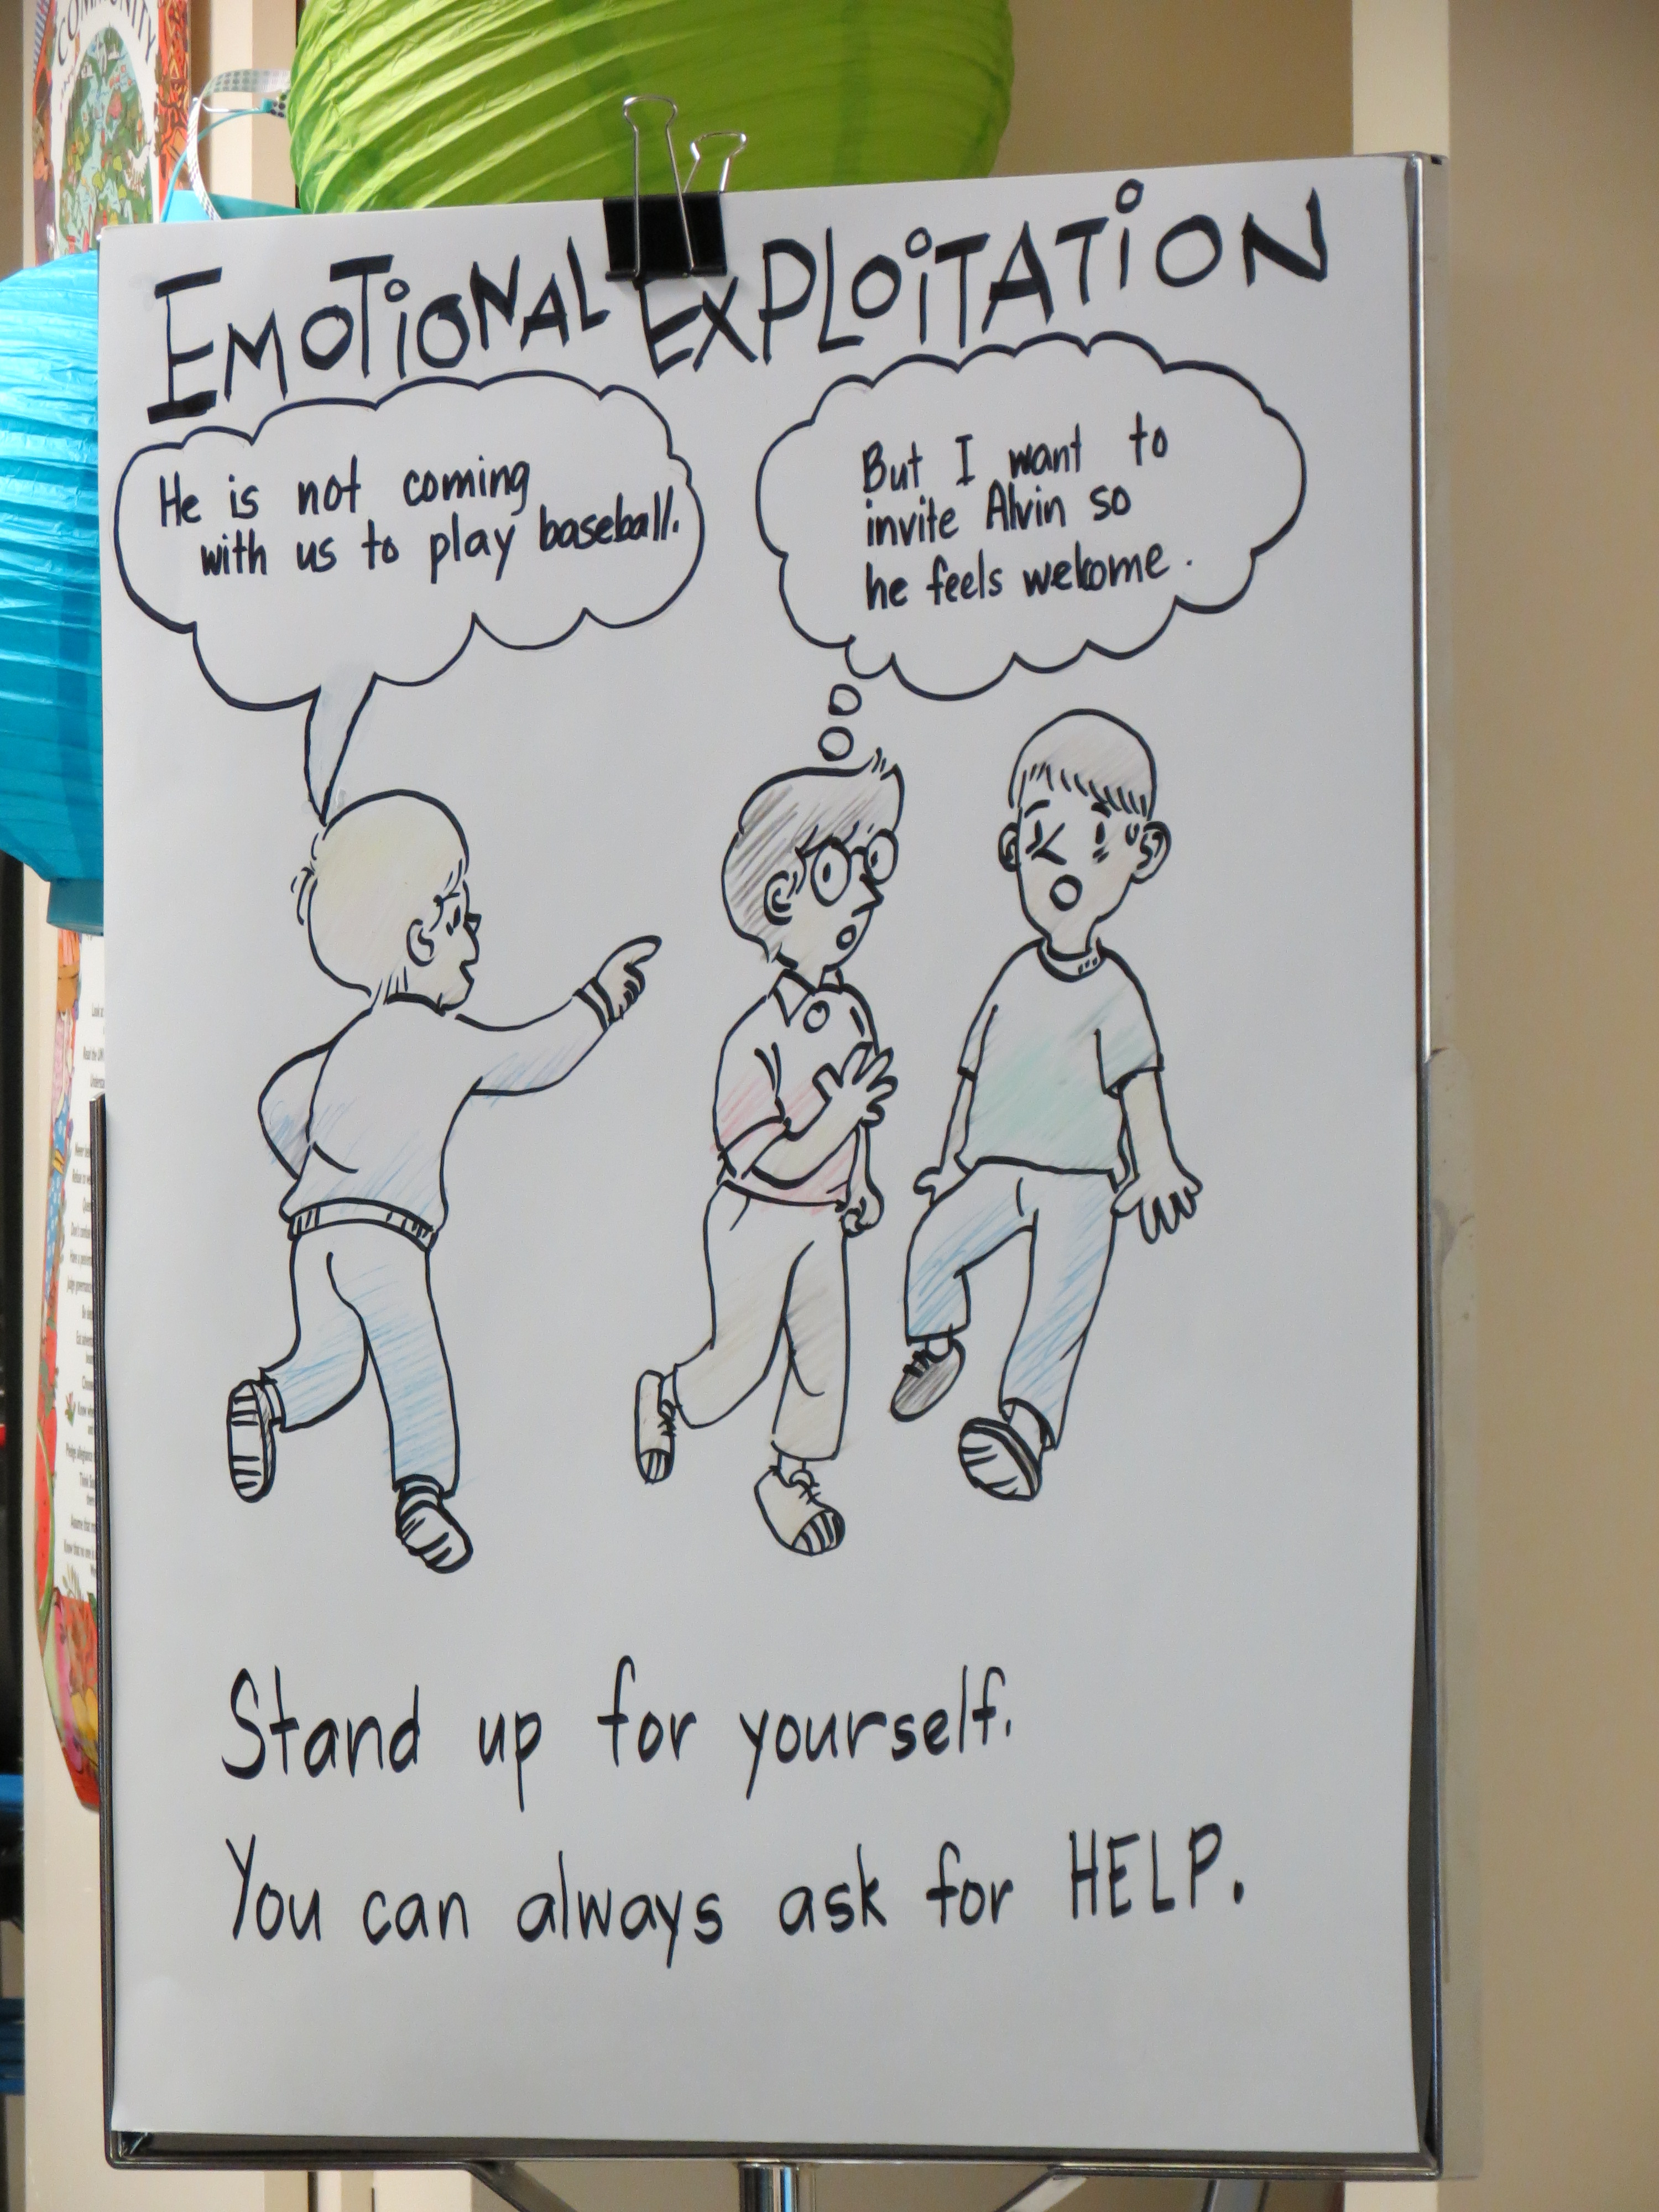 COMMUNITY
EMOTiONAL EXPLOiTATiON
He is not coming
with us to play baseball.
But I want to
invite Alvin so
he feels welcome.
Stand up for yourself.
You can always ask for HELP.